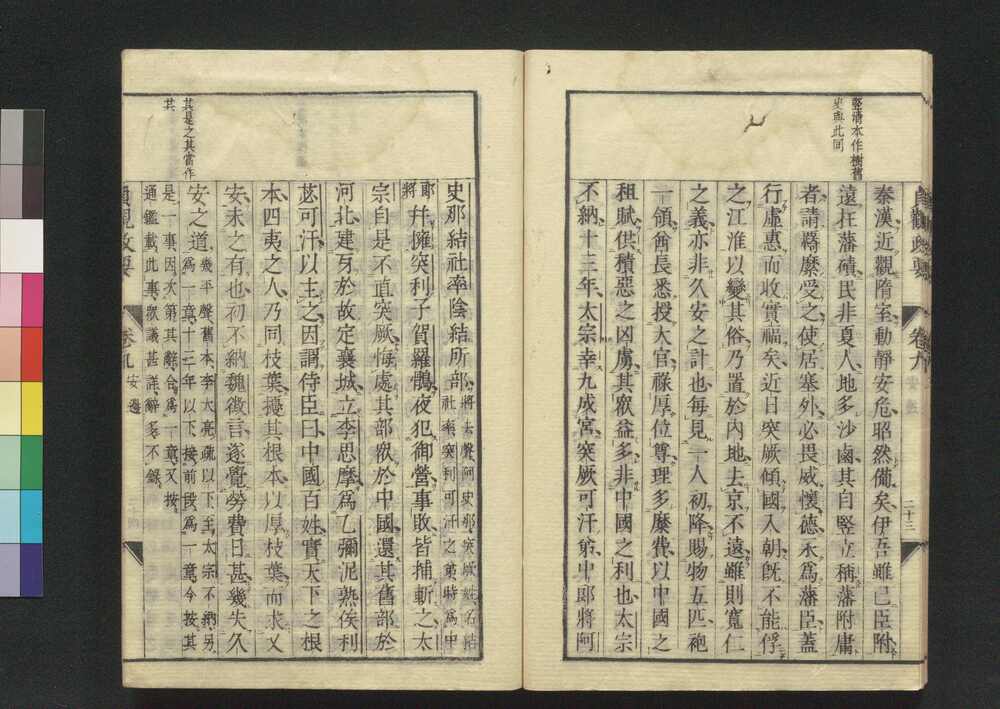 竪濟本作樹舊
史與此同
貞觀政要
卷九
安邊
二十三
秦漢近觀隋室動靜安危昭然備矣伊吾雖已臣附
遠在藩磧民非夏人地多沙鹵其自竪立稱藩附庸
者請羈縻受之使居塞外必畏威懷德永爲藩臣蓋
行虛惠而收實福矣近日突厥傾國入朝旣不能俘
之江淮以變其俗乃置於內地去京不遠雖則寬仁
之義亦非久安之計也每見一人初降賜物五匹袍
一領酋長悉授大官祿厚位尊理多糜費以中國之
租賦供積惡之凶虜其衆益多非中國之利也太宗
不納十三年太宗幸九成宮突厥可汗弟中郎將阿
其是之其當作
其
史那結社率陰結所部
將去聲阿史那突厥姓名結
社率突利可汗之弟時爲中
郎
將
幷擁突利子賀羅鶻夜犯御營事敗皆捕斬之太
宗自是不直突厥悔處其部衆於中國還其舊部於
河北建牙於故定襄城立李思摩爲乙彌泥熟俟利
苾可汗以主之因謂侍臣曰中國百姓實天下之根
本四夷之人乃同枝葉擾其根本以厚枝葉而求久
安未之有也初不納魏徵言遂覺勞費日甚幾失久
安之道
幾平聲舊本李大亮疏以下至太宗不納另
爲一章十三年以下接前段爲一章今按其
是一事因次第其辭合爲一章又按
通鑑載此事衆議甚詳辭多不錄
貞觀政要
卷九
安邊